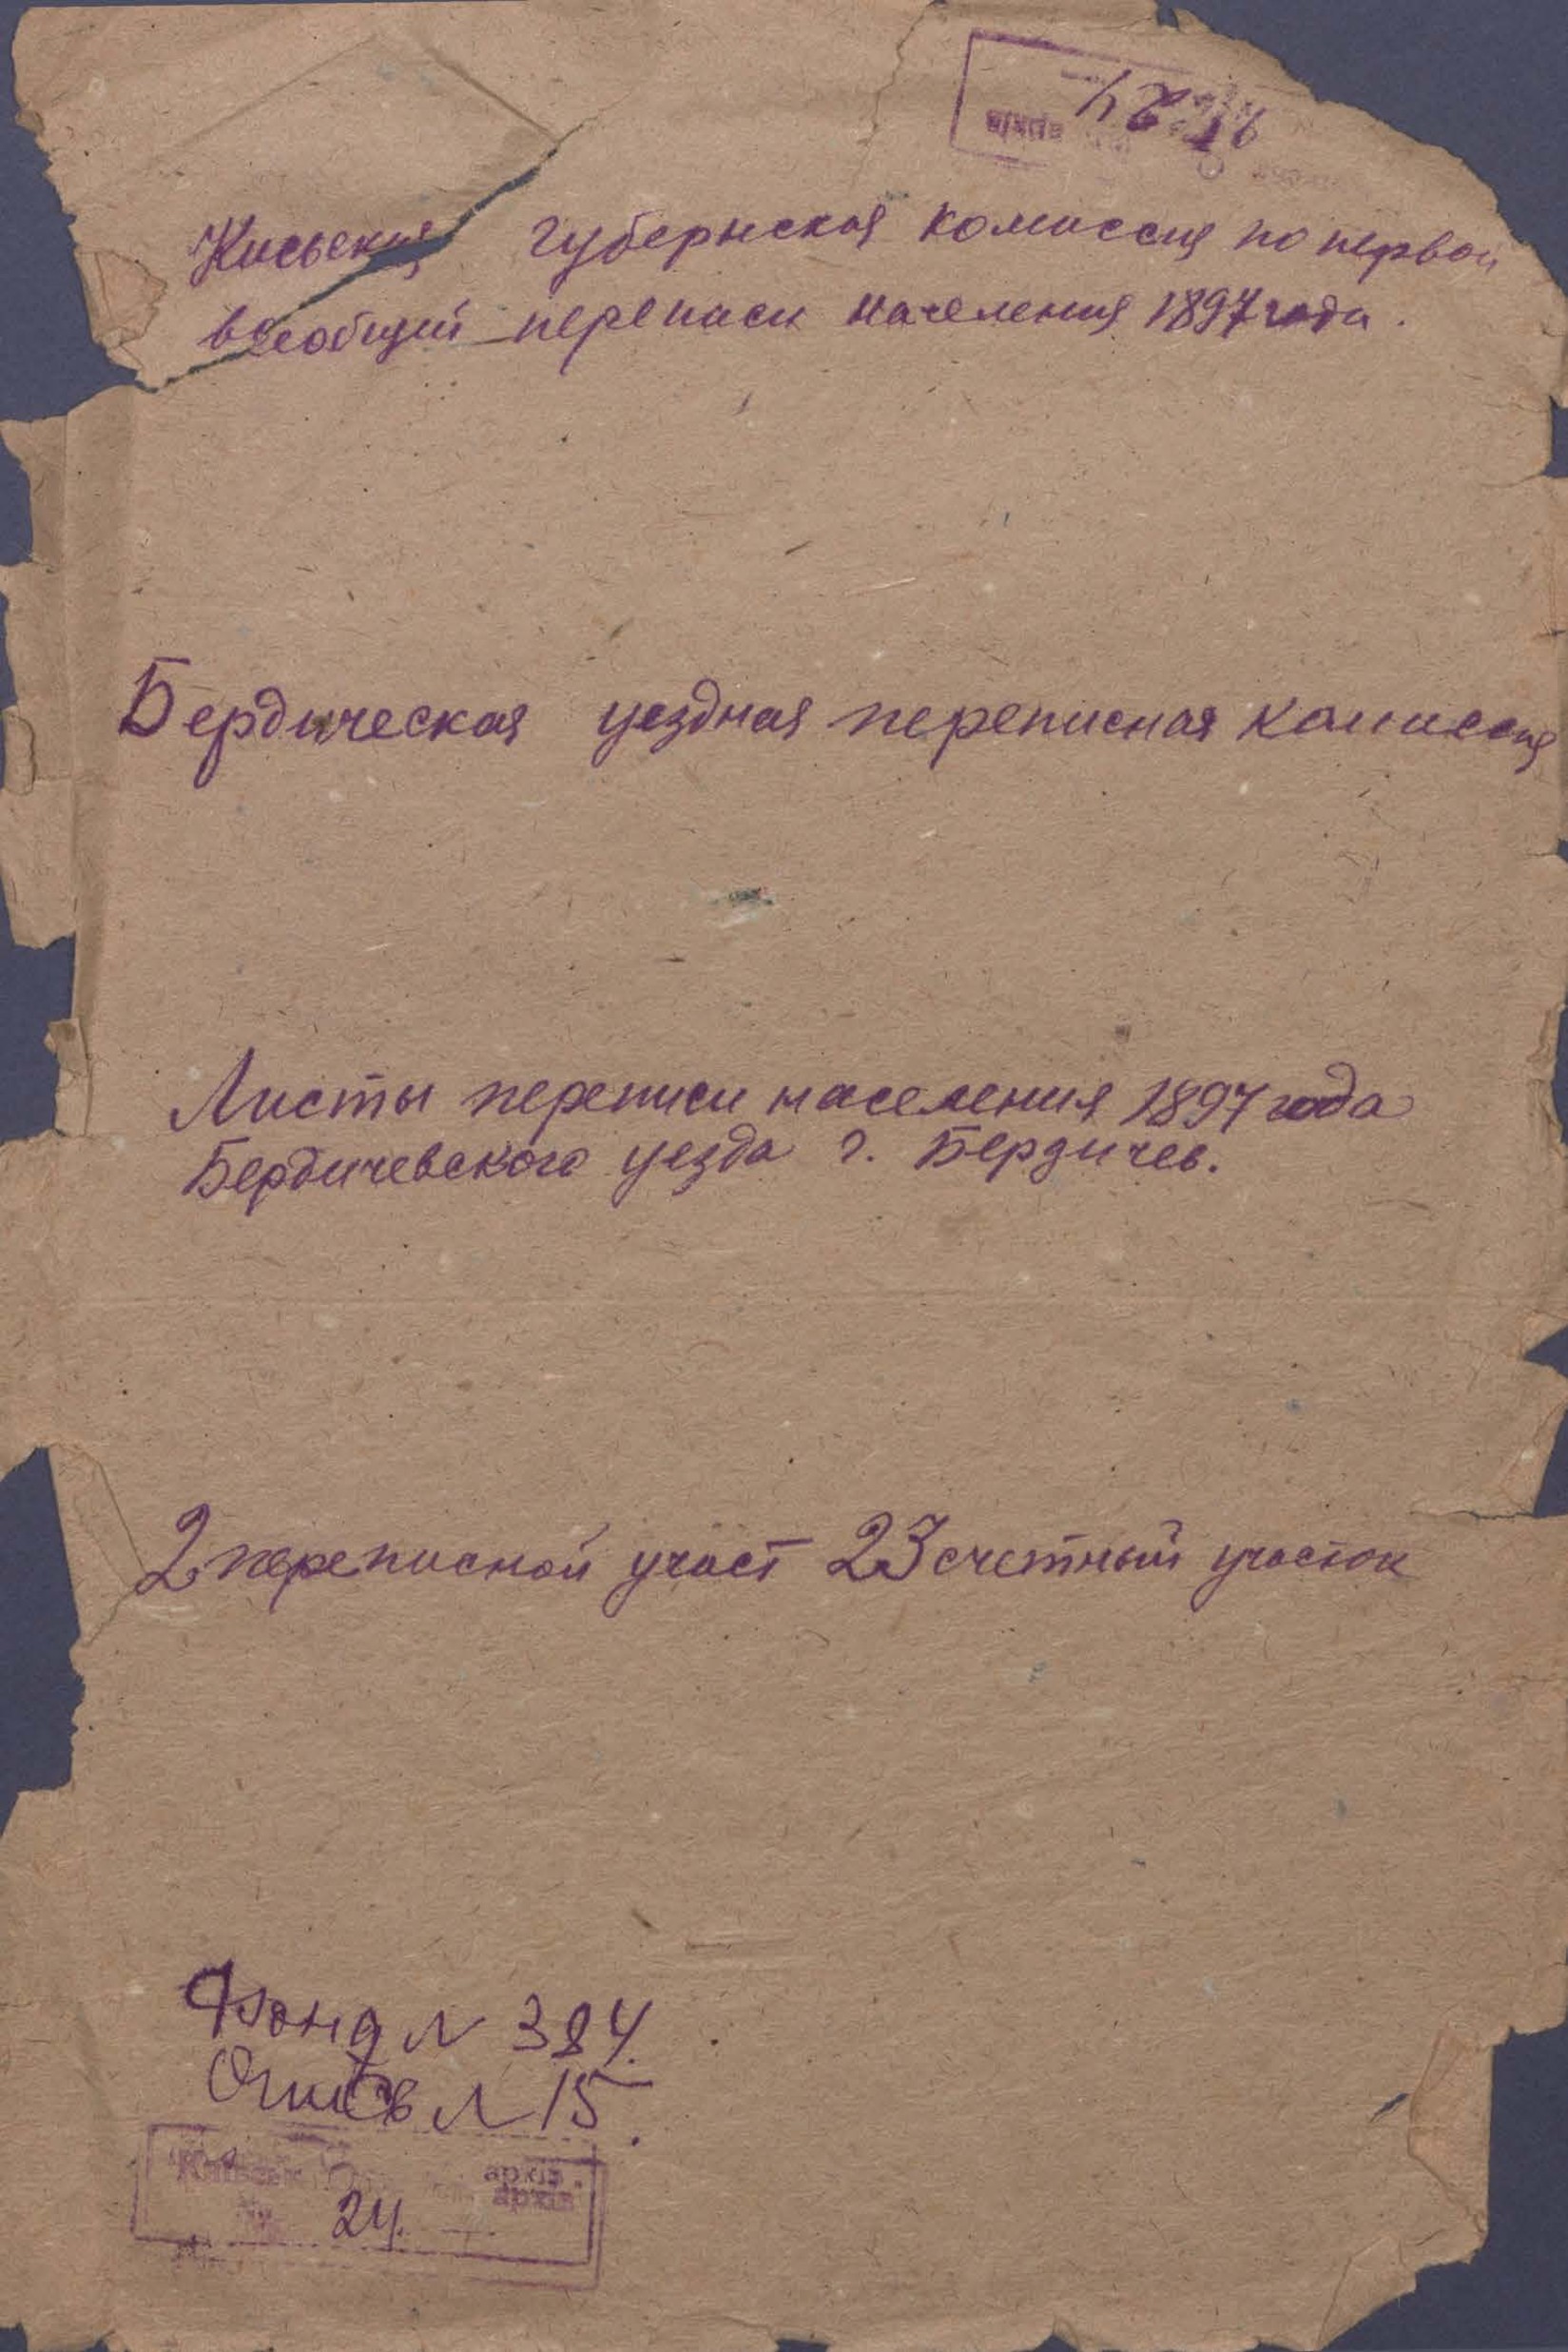 24
архів
Киевская губернская комиссия по первой
всеобщей переписи населения 1897 года.
Бердическая уездная переписная комиссия
Листы переписи населения 1897 года
Бердичевского уезда г. Бердичев.
2 переписной участ 23 счетный участок
Фонд N 384.
Опись N 15.
архів
архів
24.